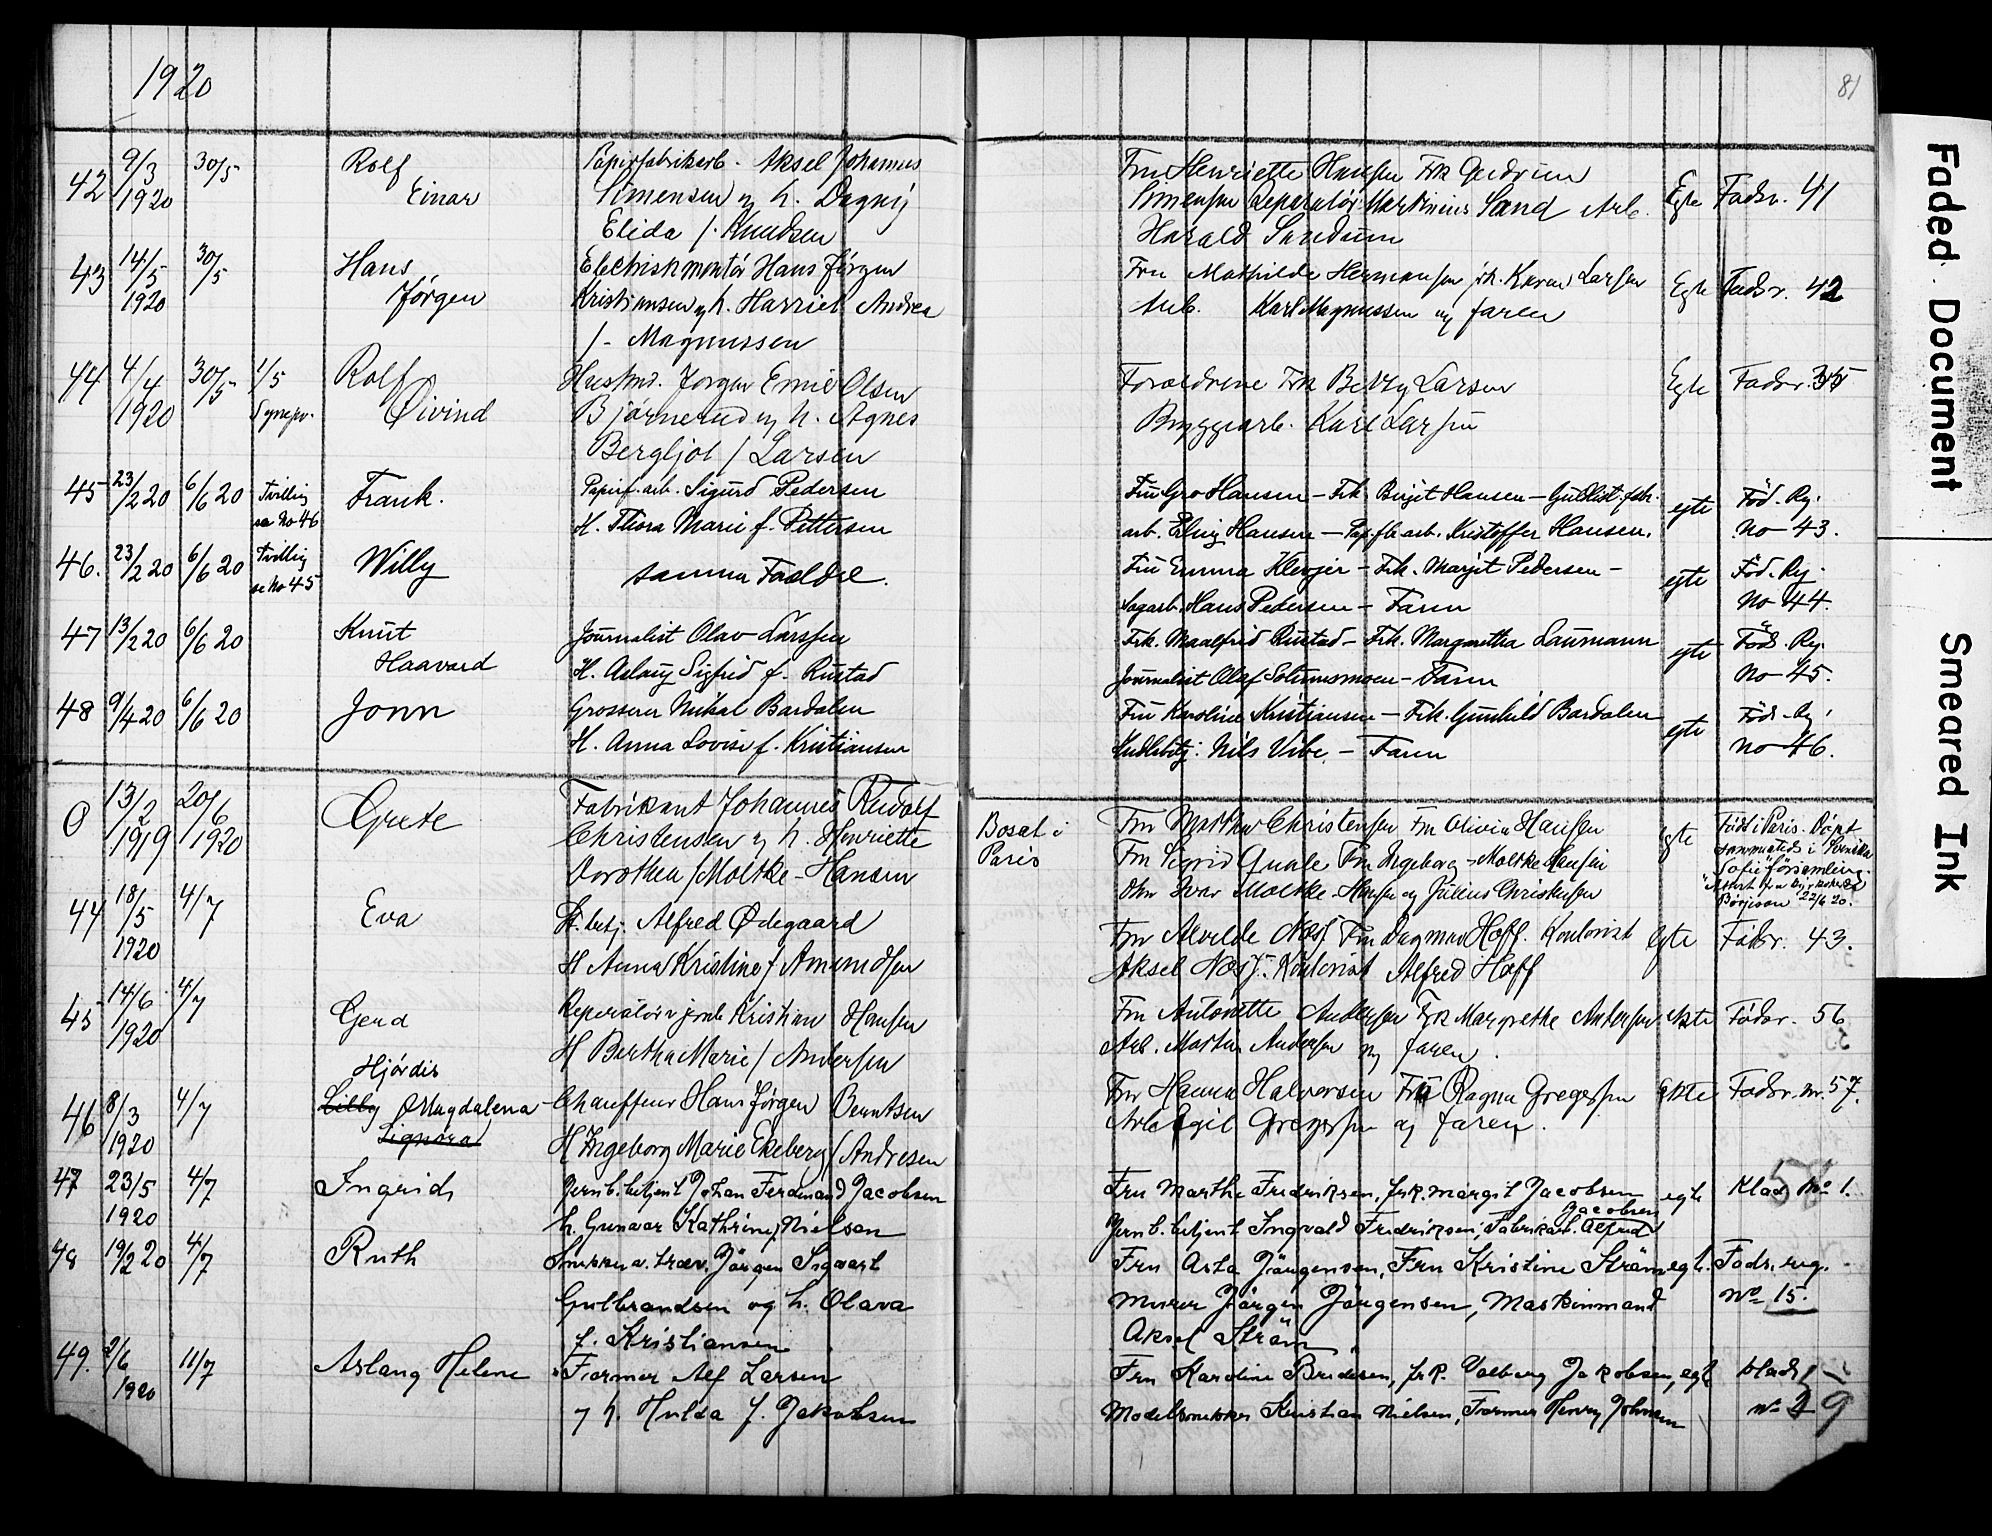 1920
81
42 9/3 1920 30/5 Rolf Einar
Papirfabrikarb. Aksel Johannes
Simensen og h. Dagny
Elida f. Knudsen
Fru Henriette Hansen Frk Gudrun
Simensen Reparatør Martinius Sand Arb.
Harald Sandum
Egte Fødsr. 41
43 14/5 1920 30/5 Hans Jørgen
Electriskmontør Hans Jørgen
Kristiansen og h. Harriet Andrea
f. Magnussen
Fru Mathilde Hermansen frk. Karen Larsen
Arb. Karl Magnussen og faren
Egte Fødsr. 42
44 4/4 1920 30/5 1/5 Rolf Øivind
Husmd. Jørgen Emil Olsen
Bjørnerud og h. Agnes
Bergljot f Larsen
Forældrene Frk Betzy Larsen
Bryggearb. Karl Larsen
Egte Fødsr. 35
45 23/2 20 6/6 20 Tvilling se No 46 Frank.
Papirf. arb. Sigurd Pedersen
H. Thora Marie f. Pettersen
Fru Gro Hansen – Frk. Birgit Hansen –
arb. Erling Hansen – Pap.fb arb. Kristoffer Hansen.
egte Fød. Reg. No 43.
46. 23/2 20 6/6 20 Tvilling se No 45 Willy
samme Forældre.
Fru Emma Klevjer – Frk. Margit Pedersen –
Sagarb. Hans Pedersen – Faren
egte Fød. Reg. No 44.
47 13/2 20 6/6 20 Knut Haavard
Journalist Olav Larssen
H. Aslaug Sigfrid f. Rustad
Frk. Maalfrid Rustad – Frk. Margaretha Laumann
Journalist Olaf Solumsmoen – Faren
egte Fød. Reg. No 45.
48 9/4 20 6/6 20 Jonn
Grosserer Mikal Bardalen
H. Anna Lovise f. Kristiansen
Fru Karoline Kristiansen – Frk. Gunhild Bardalen
Nils Vibe – Faren
egte Fød. Reg. No 46.
0 13/2 1919 20/6 1920 Grete
Fabrikant Johannes Rudolf
Christensen og h. Henriette
Dorothea f Moltke-Hansen
Bosat i
Paris
Fru Martha Christensen Fru Olivia Hansen
Fru Sigrid Quale Fru Ingeborg Moltke Hansen
Ivar Moltke Hansen og Julius Christensen
egte Født i Paris. Døpt
sammesteds i Svenska
Sofia församling.
Attest fra kyrkoherde
Börjeson 22/6 20.
44 18/5 1920 4/7 Eva
St. betj. Alfred Ødegaard
H Anna Kristine f Amundsen
Fru Alvilde Næss Fru Dagmar Hoff. Kontorist
Aksel Næss. Kontorist Alfred Hoff
Egte Fødsr. 43.
45 14/6 1920 4/7 Gerd Hjørdis
Reparatør v jernb Kristian Hansen
H Bertha Marie f Andersen
Fru Antonette Andersen Frk Margrethe Andersen
Arb. Martin Andersen og faren.
ekte Fødsr. 56
46 8/3 1920 4/7 Lilly Magdalena Signora
Chauffeur Hans Jørgen Berntsen
H Ingeborg Marie Ekeberg f Andresen
Fru Hanna Halvorsen Fru Ragna Gregersen
Arb Egil Gregersen og faren.
Ekte Fødsr. nr. 57.
47 23/5 1920 4/7 Ingrid
Jernb. betjent Johan Ferdinand Jacobsen
h. Gunvor Kathrine f Nielsen
Fru Marthe Fredriksen, frk. Margit Jacobsen
Jernb. betjent Ingvald Fredriksen, Fabrikarb. Alfred Jacobsen
egte Klad No 1. 58
48 19/2 20 4/7 Ruth
Snekker v. træv. Jørgen Sigvart
Gulbrandsen og h. Olava
f. Kristiansen
Fru Asta Jørgensen, Fru Kristine Strøm
Murer Jørgen Jørgensen, Maskinmand
Aksel Strøm
egt. Føds. reg. No 15.
49. 2/6 1920 11/7 Aslaug Helene
Former Alf Larsen
og h. Hulda f. Jakobsen
Fru Karoline Bredesen, frk. Valborg Jakobsen,
Modelsnekker Kristian Nielsen, Former Henry Johnsen
egt Klad No 2 59
Faded Document
Smeared Ink